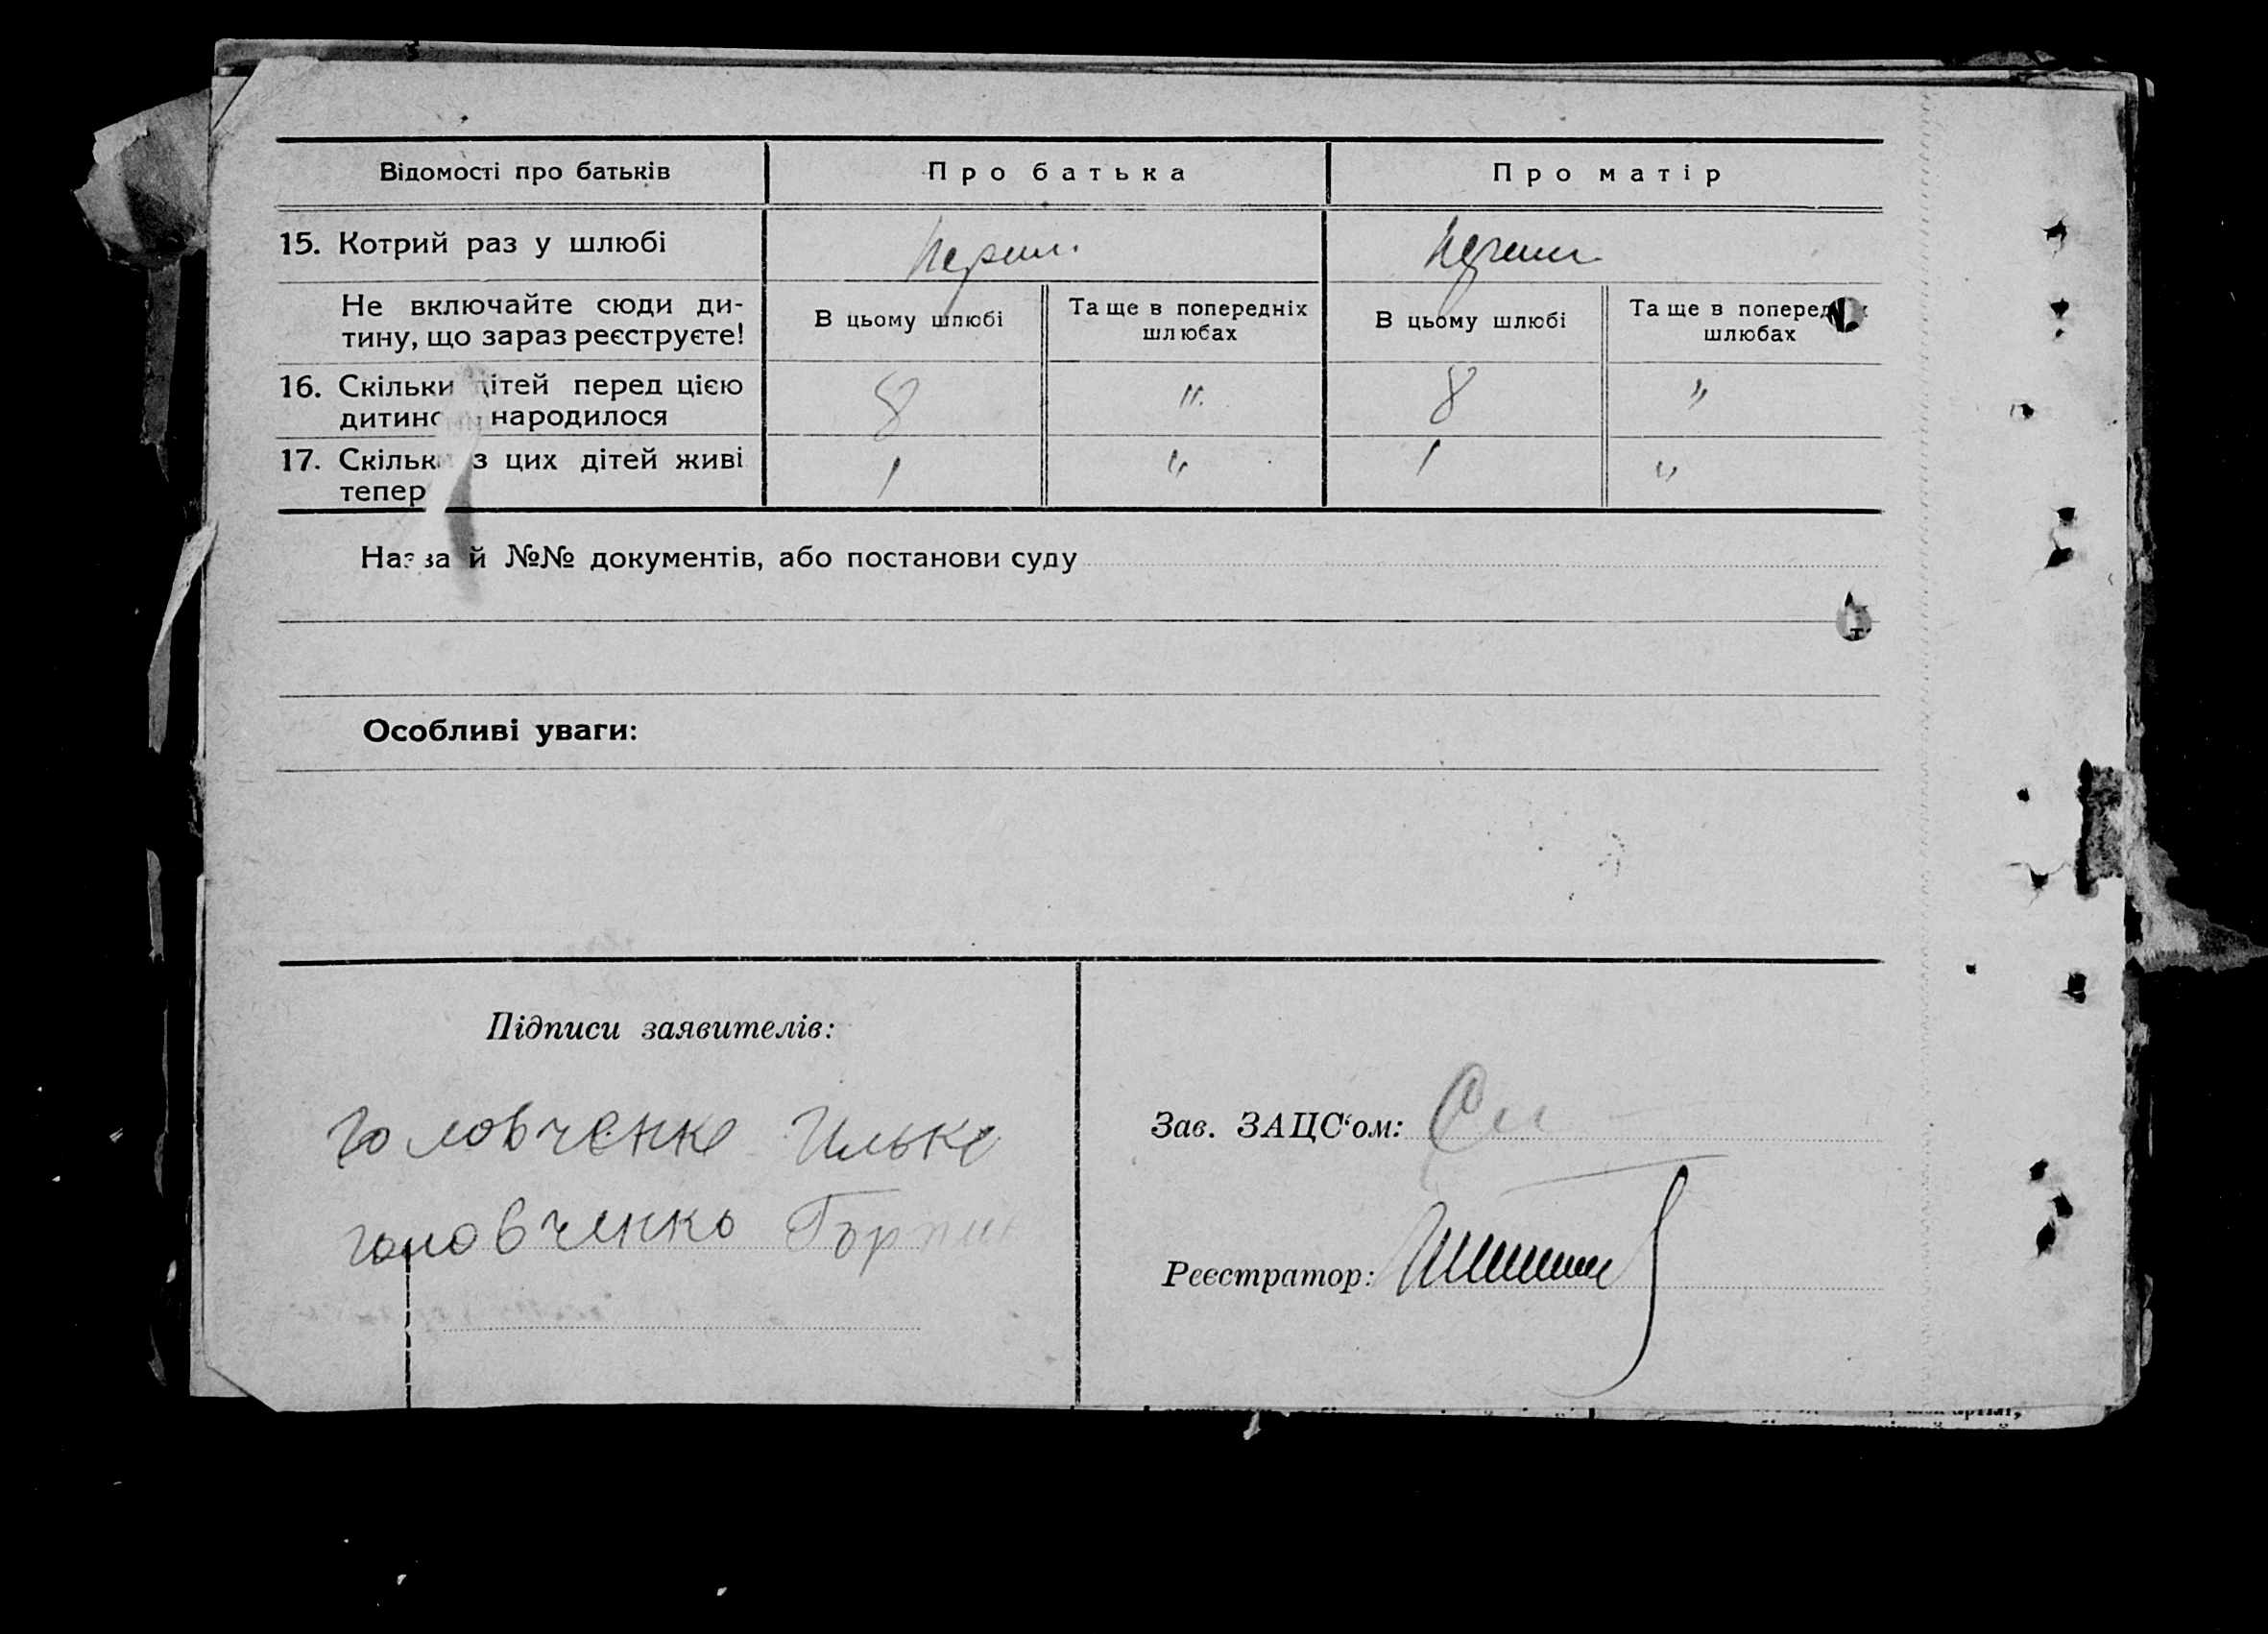 Відомості про батьків
Про батька
Про матір
15. Котрий раз у шлюбі
перши
перши
Не включайте сюди ди-
тину, що зараз реєструєте!
В цьому шлюбі
Та ще в попередніх
шлюбах
В цьому шлюбі
Та ще в поперед
шлюбах
16. Скільки дітей перед цією
дитиною народилося
8
"
8
"
17. Скільки з цих дітей живі
тепер
1
"
1
"
Назва й №№ документів, або постанови суду
Особливі уваги:
Підписи заявителів:
Головченко Илько
Головченко Горпин
Зав. ЗАЦС'ом:
Реєстратор: